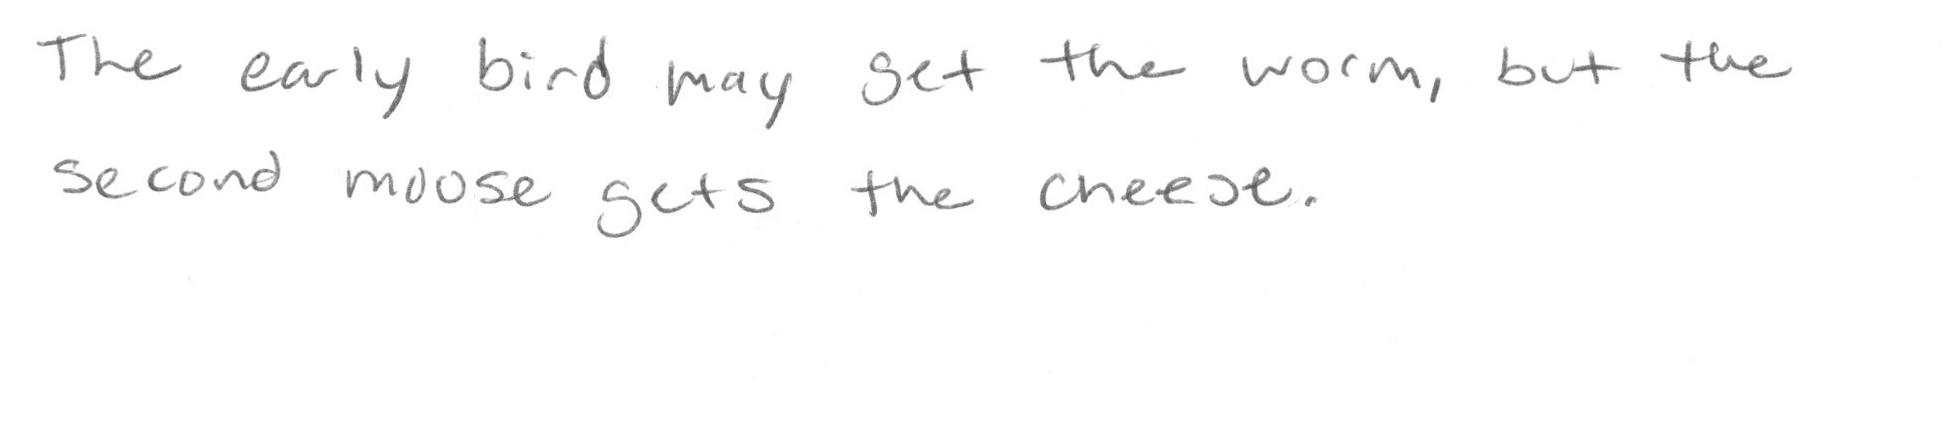 The early bird may get the worm, but the
second moose gets the cheese.